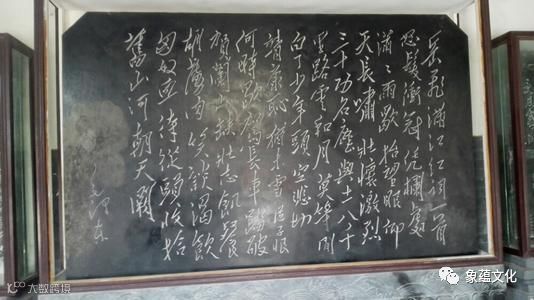 岳飛滿江紅詞一首
怒髮衝冠凭欄處
瀟瀟雨歇抬望眼仰
天長嘯壯懷激烈
三十功名塵與土八千
里路雲和月莫等閒
白了少年頭空悲切
靖康恥猶未雪臣子恨
何時歇駕長車踏破
賀蘭山缺壯志飢餐
胡虜肉笑談渴飲
匈奴血待從頭收拾
舊山河朝天闕
毛泽东
大数跨境
象蕴文化